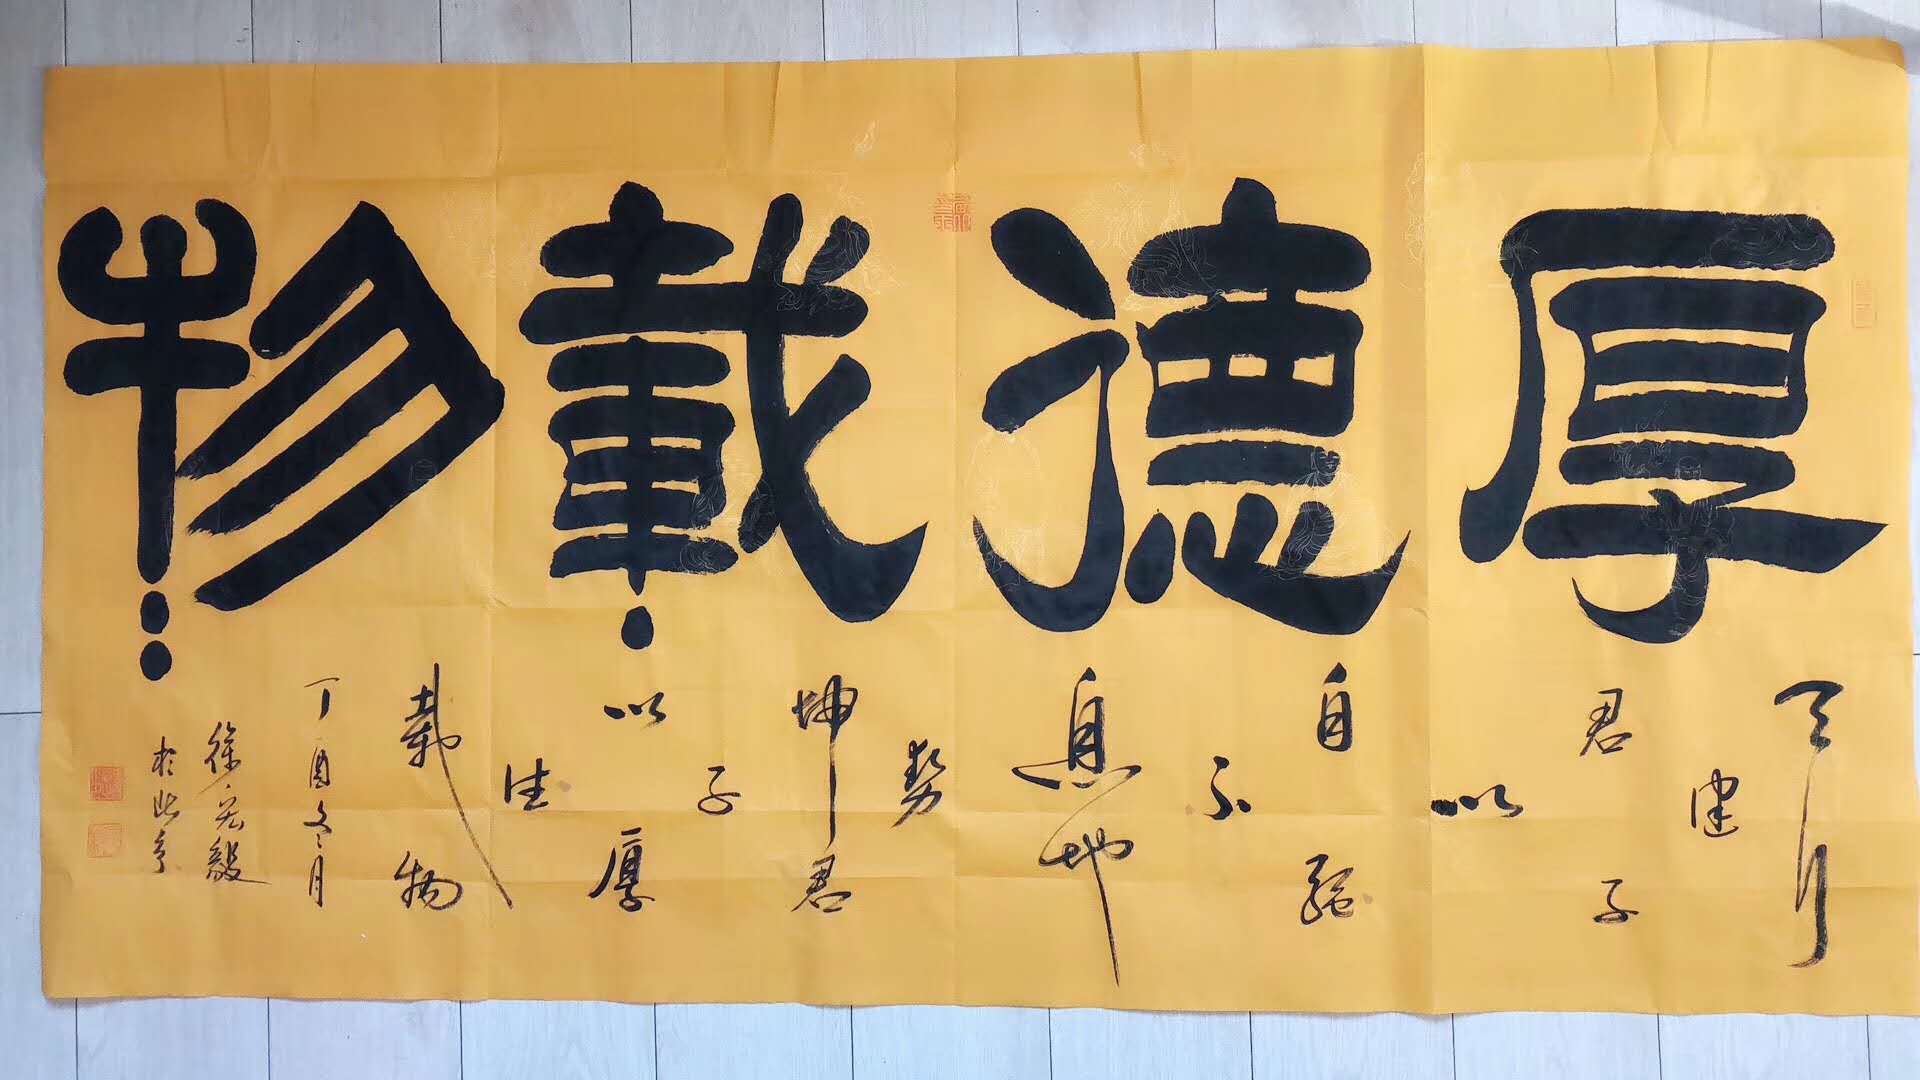 厚德載物
天行
健
君子
以
自强
不
息地
勢
坤君
子
以厚
德
載物
丁酉冬月
徐宏毅
於